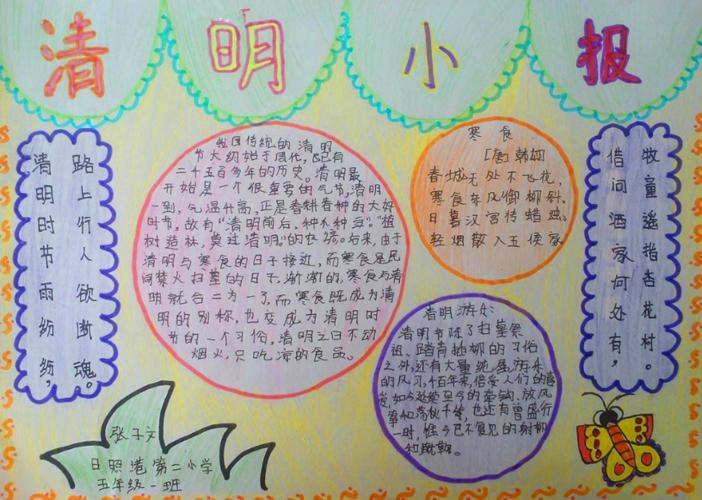 清明小报
清明时节雨纷纷,
路上行人欲断魂。
祖国传统的清明
节大约始于周代,已有
二千五百多年的历史。清明最
开始是一个很重要的气节,清明
一到,气温升高,正是春耕春种的大好
时节,故有“清明前后,种木种豆”。“植
树造林,莫过清明”的农谚。后来,由于
清明与寒食的日子接近,而寒食是民
间禁火扫墓的日子,渐渐的,寒食与清
明就合二为一了,而寒食既成为清
明的别称,也变成为清明时
节的一个习俗,清明之日不动
烟火,只吃凉的食品。
寒食
[唐]韩翃
春城无处不飞花,
寒食东风御柳斜。
日暮汉宫传蜡烛,
轻烟散入五侯家
清明游乐:
清明节除了扫墓祭
祖、踏青插柳的习俗
之外,还有大量游乐
的风习,千百年来,倍受人们的喜
爱,如今延续至今的牵钩、放风
筝和荡秋千等,也还有曾盛行
一时,惟今已不复见的射柳
和蹴鞠。
借问酒家何处有,
牧童遥指杏花村。
张子文
日照港第二小学
五年级一班